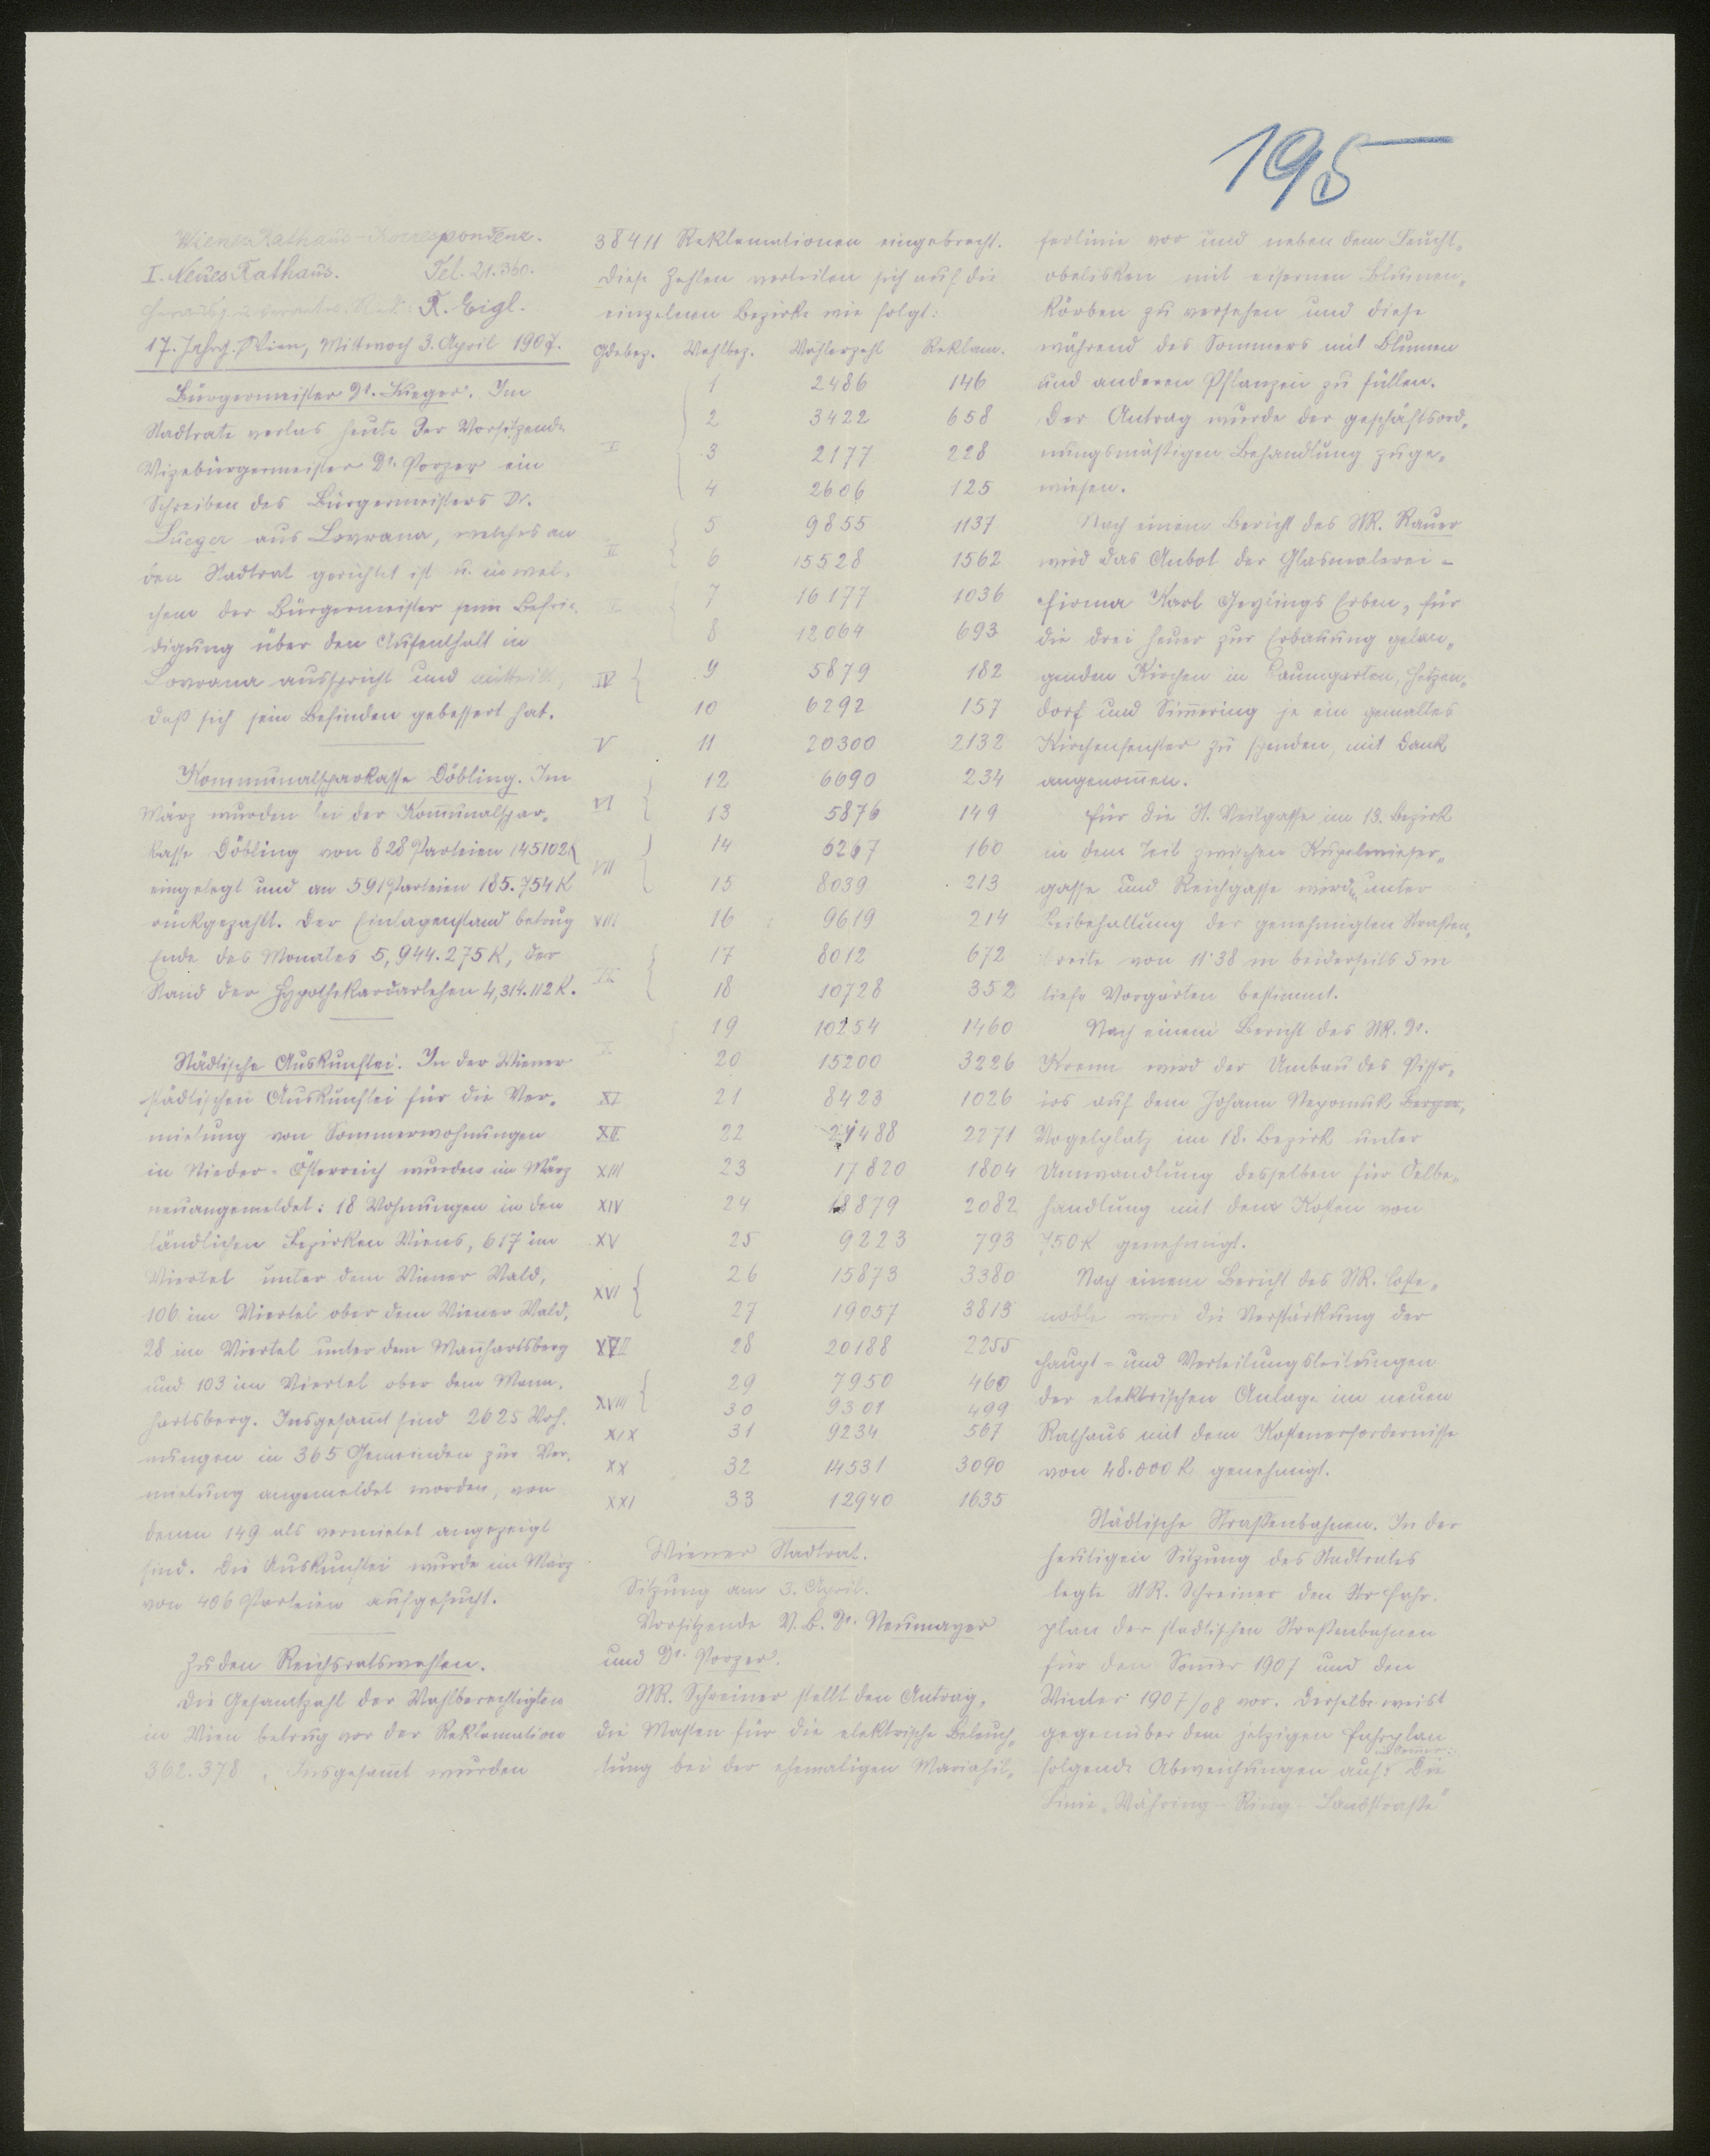 195
Wiener Rathaus-Korrespondenz.
I. Neues Rathaus. Tel. 21.360.
Herausg. u. verantw. Red. R. Eigl.
17. Jahrg. Wien, Mittwoch 3. April 1907.
Bürgermeister Dr. Lueger. Im
Stadtrate verlas heute der Vorsitzende
Vizebürgermeister Dr. Porzer ein
Schreiben des Bürgermeisters Dr.
Lueger aus Lovrana, welches an
den Stadtrat gerichtet ist u. in wel-
chem der Bürgermeister seine Befrie-
digung über den Aufenthalt in
Lovrana ausspricht und mitteilt,
daß sich sein Befinden gebessert hat.
Kommunalsparkasse Döbling. Im
März wurden bei der Kom̅unalspar-
kasse Döbling von 828 Parteien 145102 K
eingelegt und an 591 Parteien 185.754 K
rückgezahlt. Der Einlagenstand betrug
Ende des Monates 5,944.275 K, der
Stand der Hypothekardarlehen 4,314.112 K.
Städtische Auskunftei. In der Wiener
städtischen Auskunftei für die Ver-
mietung von Sommerwohnungen
in Nieder-Österreich wurden im März
neuangemeldet: 18 Wohnungen in den
ländlichen Bezirken Wiens, 617 im
Viertel unter dem Wiener Wald,
106 im Viertel ober dem Wiener Wald,
28 im Viertel unter dem Man̅hartsberg
und 103 im Viertel ober dem Mann-
hartsberg. Insgesam̅t sind 2625 Woh-
nungen in 365 Gemeinden zur Ver-
mietung angemeldet worden, von
denen 149 als vermietet angezeigt
sind. Die Auskunftei wurde im März
von 406 Parteien aufgesucht.
Zu den Reichsratswahlen.
Die Gesamtzahl der Wahlberechtigten
in Wien betrug vor der Reklamation
362.378. Insgesam̅t wurden
38411 Reklamationen eingebracht.
Diese Zahlen verteilen sich auf die
einzelnen Bezirke wie folgt:
Gdebez. Wahlbez. Wählerzahl Reklam.
1 2486 146
2 3422 658
I 3 2177 228
4 2606 125
5 9855 1137
II 6 15528 1562
III 7 16177 1036
8 12064 693
IV 9 5879 182
10 6292 157
V 11 20300 2132
12 6690 234
VI 13 5876 149
14 6267 160
VII 15 8039 213
VIII 16 9619 214
17 8012 672
IX 18 10728 352
19 10254 1460
X 20 15200 3226
XI 21 8423 1026
XII 22 21488 2271
XIII 23 17820 1804
XIV 24 18879 2082
XV 25 9223 793
26 15873 3380
XVI 27 19057 3813
XVII 28 20188 2255
29 7950 460
XVIII 30 9301 499
XIX 31 9234 567
XX 32 14531 3090
XXI 33 12940 1635
Wiener Stadtrat.
Sitzung am 3. April.
Vorsitzende V.B. Dr. Neumayer
und Dr. Porzer.
StR. Schreiner stellt den Antrag,
die Masten für die elektrische Beleuch-
tung bei der ehemaligen Mariahil-
ferlinie vor und neben dem Leucht-
obelisken mit eisernen Blumen-
körben zu versehen und diese
während des Sommers mit Blumen
und anderen Pflanzen zu füllen.
Der Antrag wurde der geschäftsord-
nungsmäßigen Behandlung zuge-
wiesen.
Nach einem Bericht des StR. Rauer
wird das Anbot der Glasmalerei-
firma Karl Geylings Erben, für
die drei heuer zur Erbauung gelan-
genden Kirchen in Baumgarten, Hetzen-
dorf und Sim̅ering je ein gemaltes
Kirchenfenster zu spenden, mit Dank
angenom̅en.
Für die St. Veitgasse im 13. Bezirk
in dem Teil zwischen Kupelwieser-
gasse und Reichgasse werden unter
Beibehaltung der genehmigten Straßen-
breite von 11·38 m beiderseits 5 m
tiefe Vorgärten bestimmt.
Nach einem Bericht des StR. Dr.
Krenn wird der Umbau des Pisso-
irs auf dem Johann Nepomuk Berger-
Vogelplatz im 18. Bezirk unter
Umwandlung desselben für Oelbe-
handlung mit dem Kosten von
750 K genehmigt.
Nach einem Bericht des StR. Coste-
noble wird die Verstärkung der
Haupt- und Verteilungsleitungen
der elektrischen Anlage im neuen
Rathaus mit dem Kostenerfordernisse
von 48.000 K genehmigt.
Städtische Straßenbahnen. In der
heutigen Sitzung des Stadtrates
legte StR. Schreiner den Fahr-
plan der städtischen Straßenbahnen
für den Som̅er 1907 und den
Winter 1907/08 vor. Derselbe weist
gegenüber dem jetzigen Fahrplan
folgende Abweichungen auf: Die
Linie „Währing-Ring-Landstraße"